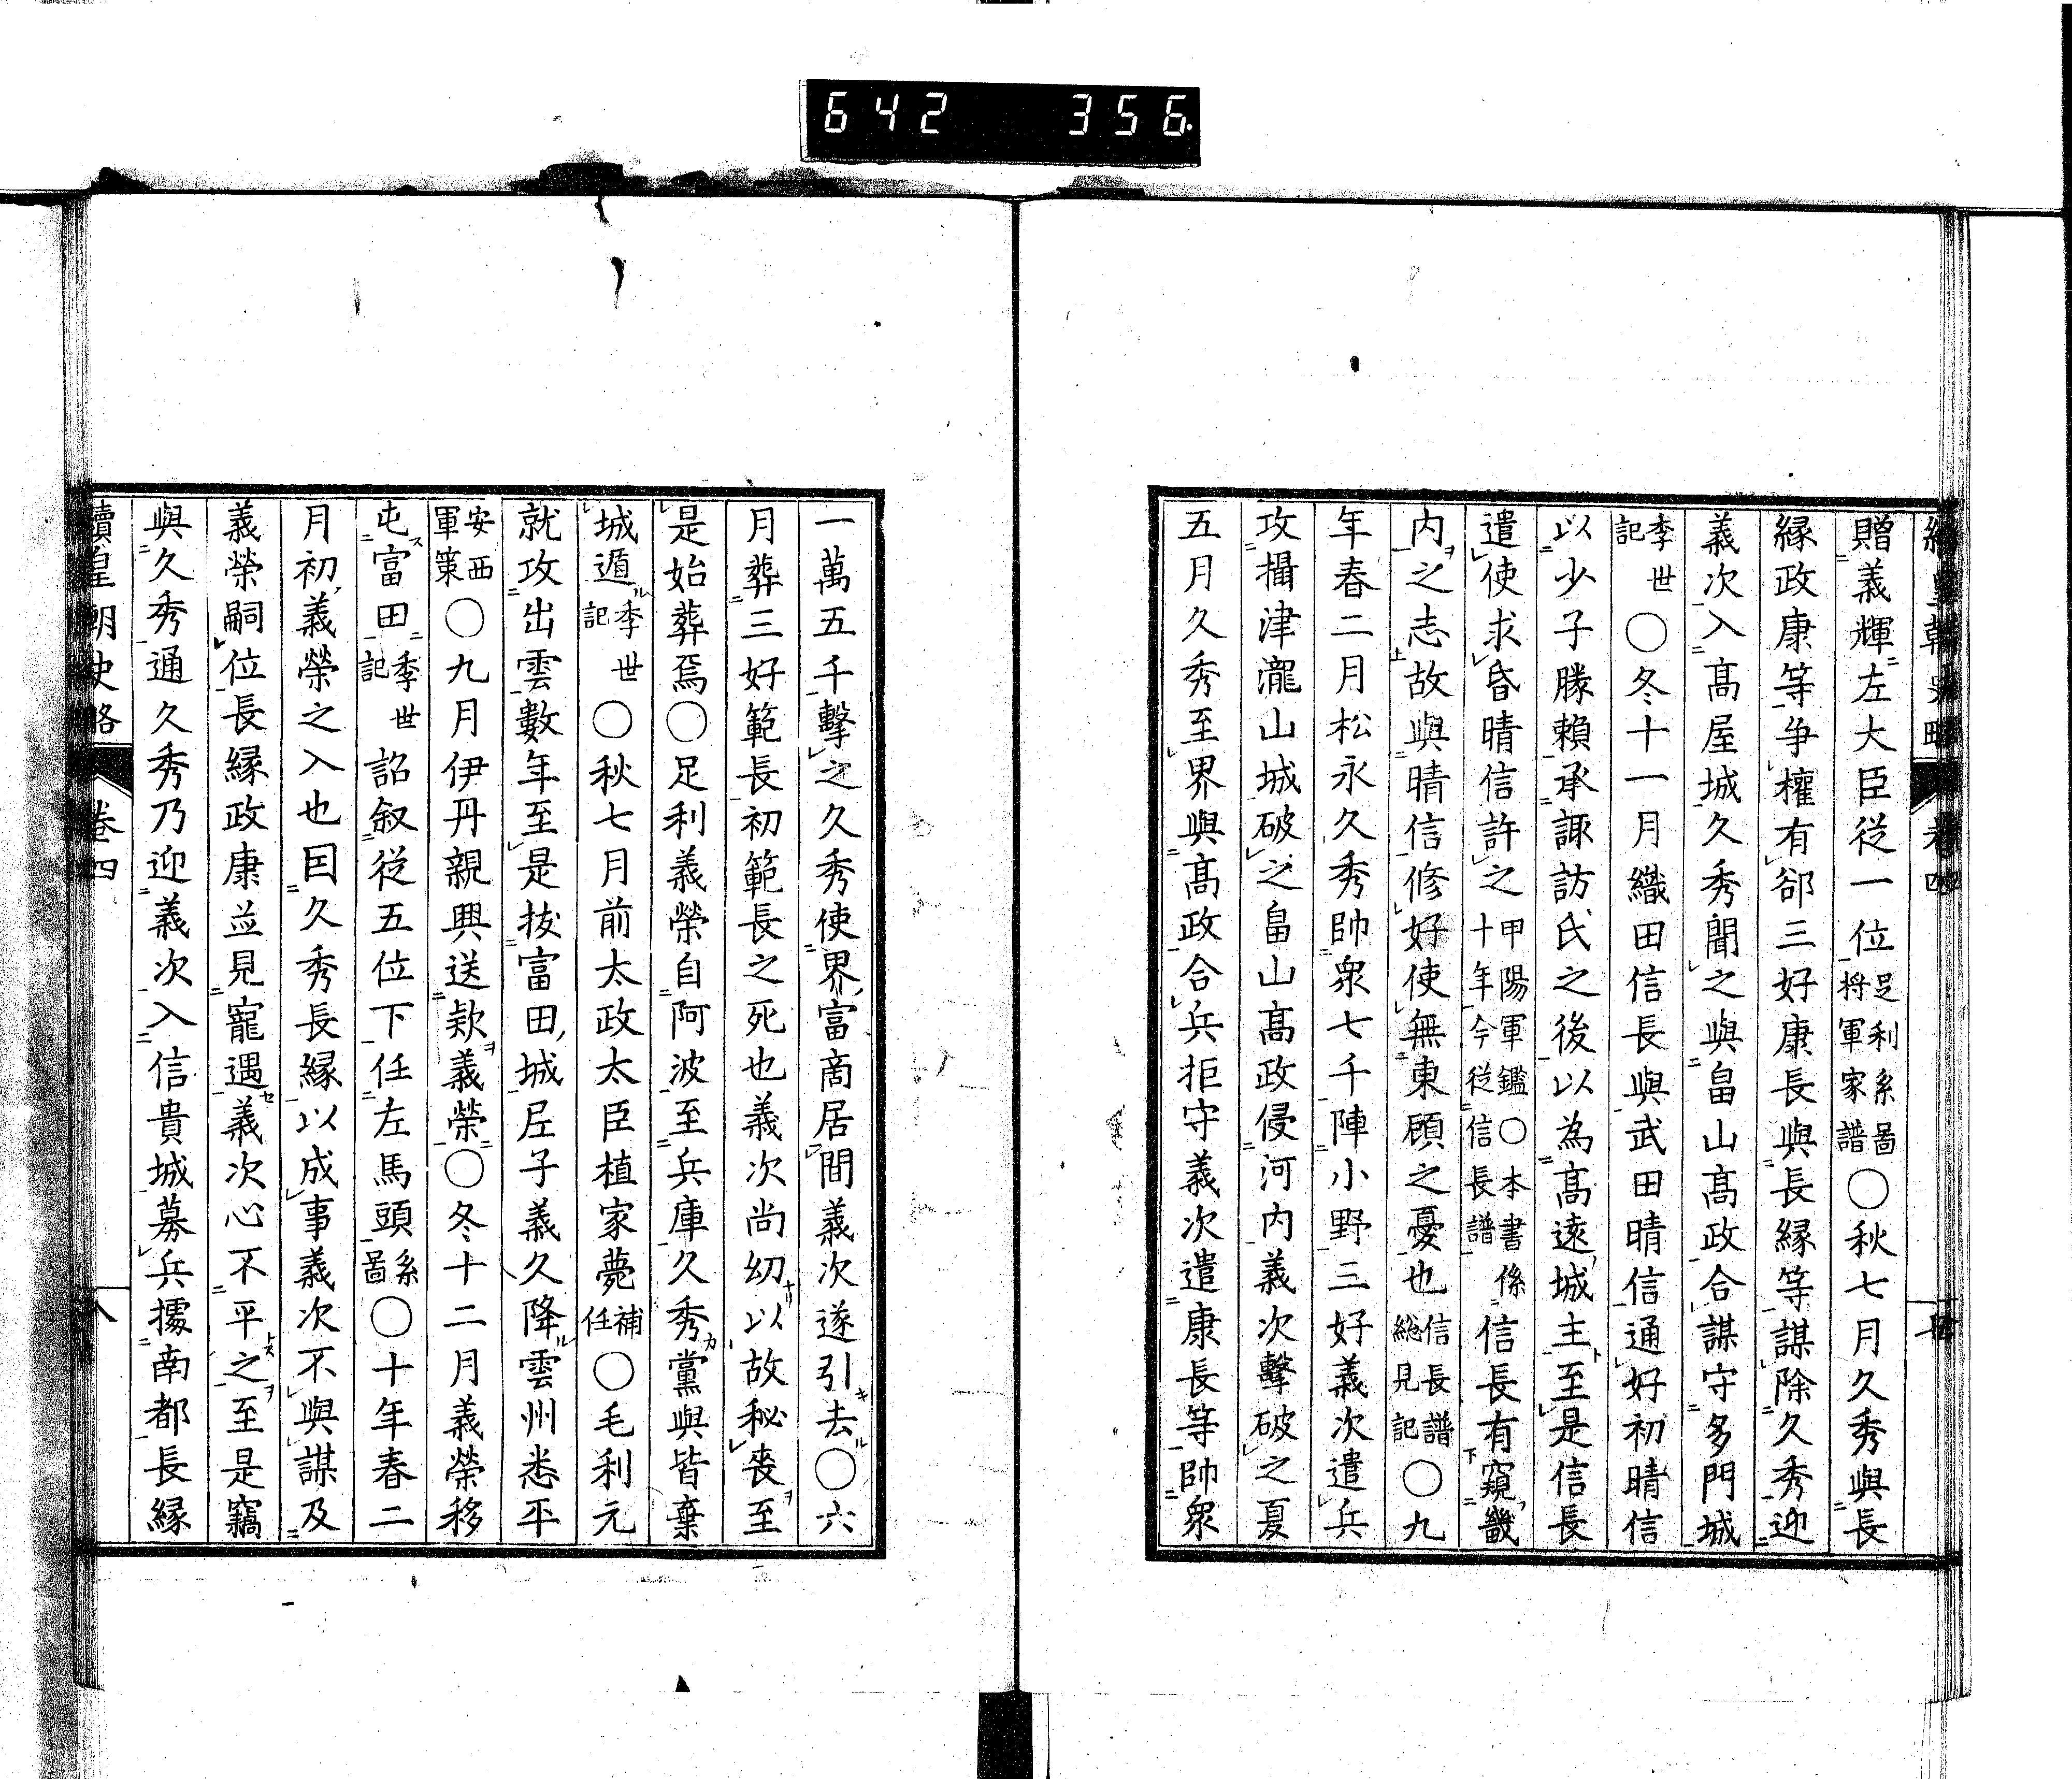 642 356.
贈義輝左大臣従一位足利系圖将軍家譜〇秋七月久秀與長
縁政康等争權有郤三好康長與長縁等謀除久秀迎
義次入髙屋城久秀聞之與畠山髙政合謀守多門城
季世記〇冬十一月織田信長與武田晴信通好初晴信
以少子勝頼承諏訪氏之後以為髙遠城主至是信長
遣使求昏晴信許之甲陽軍鑑〇本書係十年今従信長譜信長有窺畿
内之志故與晴信修好使無東顧之憂也信長譜総見記〇九
年春二月松永久秀帥衆七千陣小野三好義次遣兵
攻攝津瀧山城破之畠山髙政侵河内義次擊破之夏
五月久秀至界與髙政合兵拒守義次遣康長等帥衆
一萬五千擊之久秀使界富商居間義次遂引去〇六
月葬三好範長初範長之死也義次尚幼以故秘喪至
是始葬焉〇足利義榮自阿波至兵庫久秀黨與皆棄
城遁季世記〇秋七月前太政太臣植家薨補任〇毛利元
就攻出雲數年至是抜富田城尼子義久降雲州悉平
安西軍策〇九月伊丹親興送欵義榮〇冬十二月義榮移
屯富田季世記詔叙従五位下任左馬頭系圖〇十年春二
月初義榮之入也因久秀長縁以成事義次不與謀及
義榮嗣位長縁政康並見寵遇義次心不平之至是竊
與久秀通久秀乃迎義次入信貴城募兵據南都長縁
續皇朝史略 卷四 八